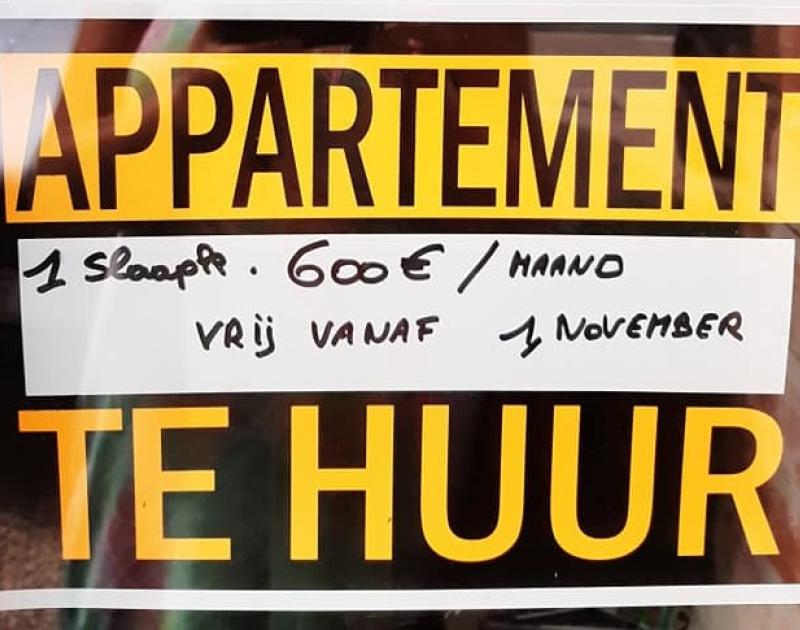 APPARTEMENT
1 slaapk. 600€ / MAAND
VRIJ VANAF 1 NOVEMBER
TE HUUR